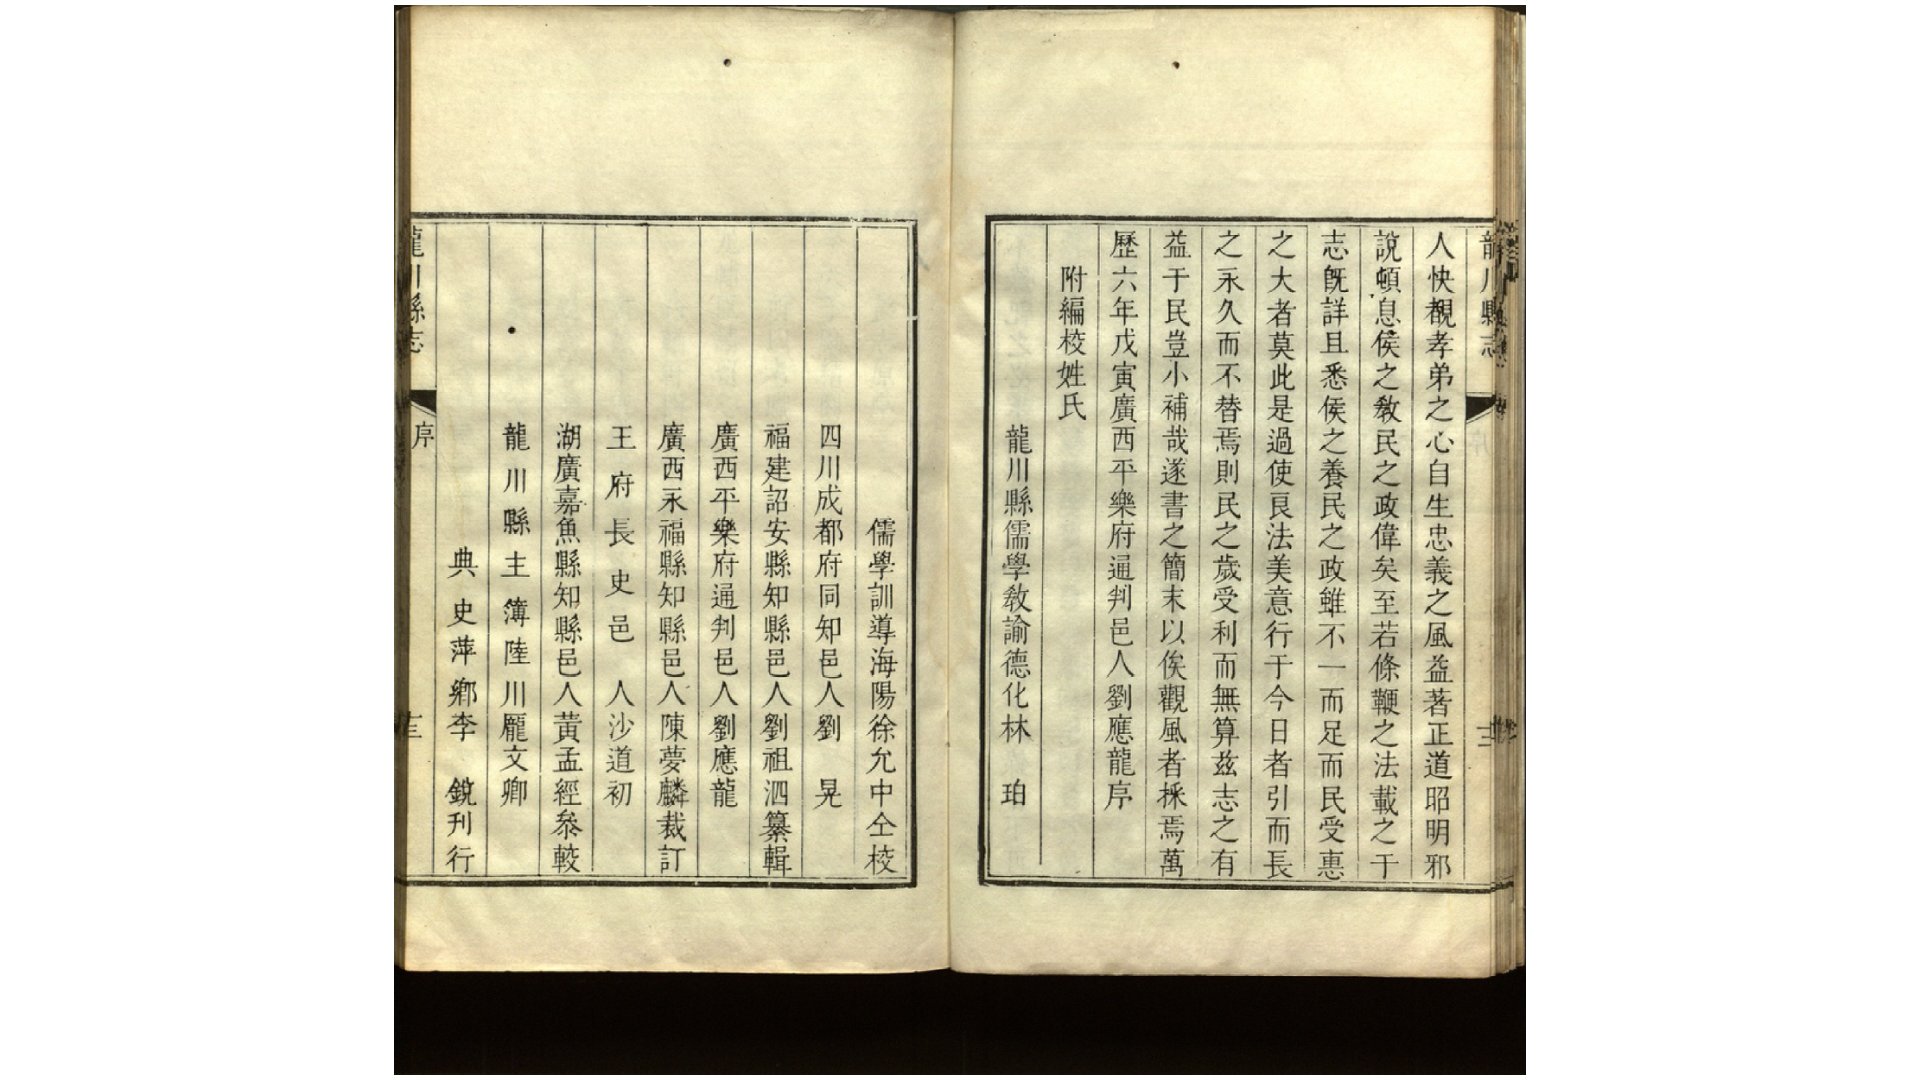 龍川縣志
序
十二
人快覩孝弟之心自生忠義之風益著正道昭明邪
說頓息侯之敎民之政偉矣至若條鞭之法載之于
志旣詳且悉侯之養民之政雖不一而足而民受惠
之大者莫此是過使良法美意行于今日者引而長
之永久而不替焉則民之歲受利而無算兹志之有
益于民豈小補哉遂書之簡末以俟觀風者採焉萬
歷六年戊寅廣西平樂府通判邑人劉應龍序
附編校姓氏
龍川縣儒學敎諭德化林 珀
儒學訓導海陽徐允中仝校
四川成都府同知邑人劉 晃
福建詔安縣知縣邑人劉祖泗纂輯
廣西平樂府通判邑人劉應龍
廣西永福縣知縣邑人陳夢麟裁訂
王府長史邑 人沙道初
湖廣嘉魚縣知縣邑人黃孟經叅較
龍川縣主簿陸川龎文卿
典史萍鄉李 銳刋行
龍川縣志
序
十三